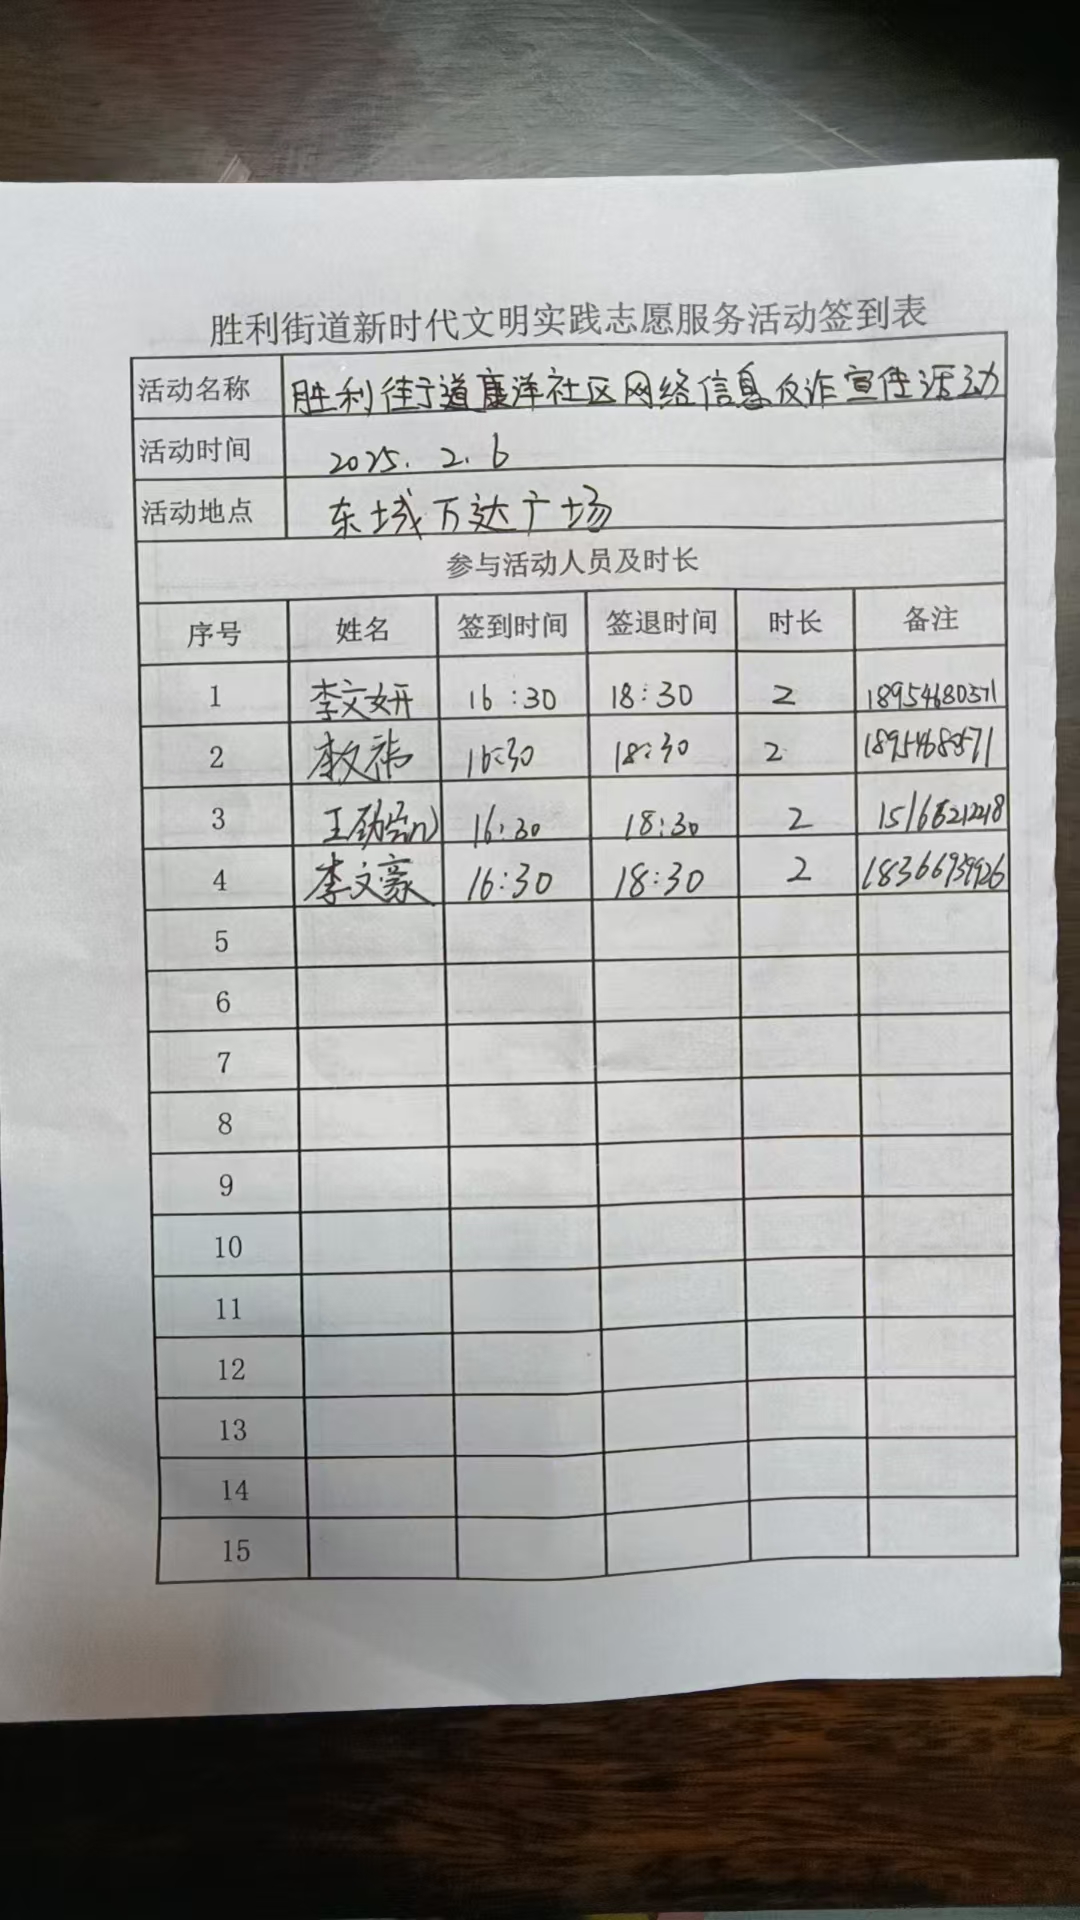 胜利街道新时代文明实践志愿服务活动签到表
活动名称 胜利街道康洋社区网络信息反诈宣传活动
活动时间 2025.2.6
活动地点 东城万达广场
参与活动人员及时长
序号 姓名 签到时间 签退时间 时长 备注
1 李文妍 16:30 18:30 2 18954680571
2 李文祎 16:30 18:30 2 18954680571
3 16:30 18:30 2
4 李文豪 16:30 18:30 2 18366939926
5
6
7
8
9
10
11
12
13
14
15